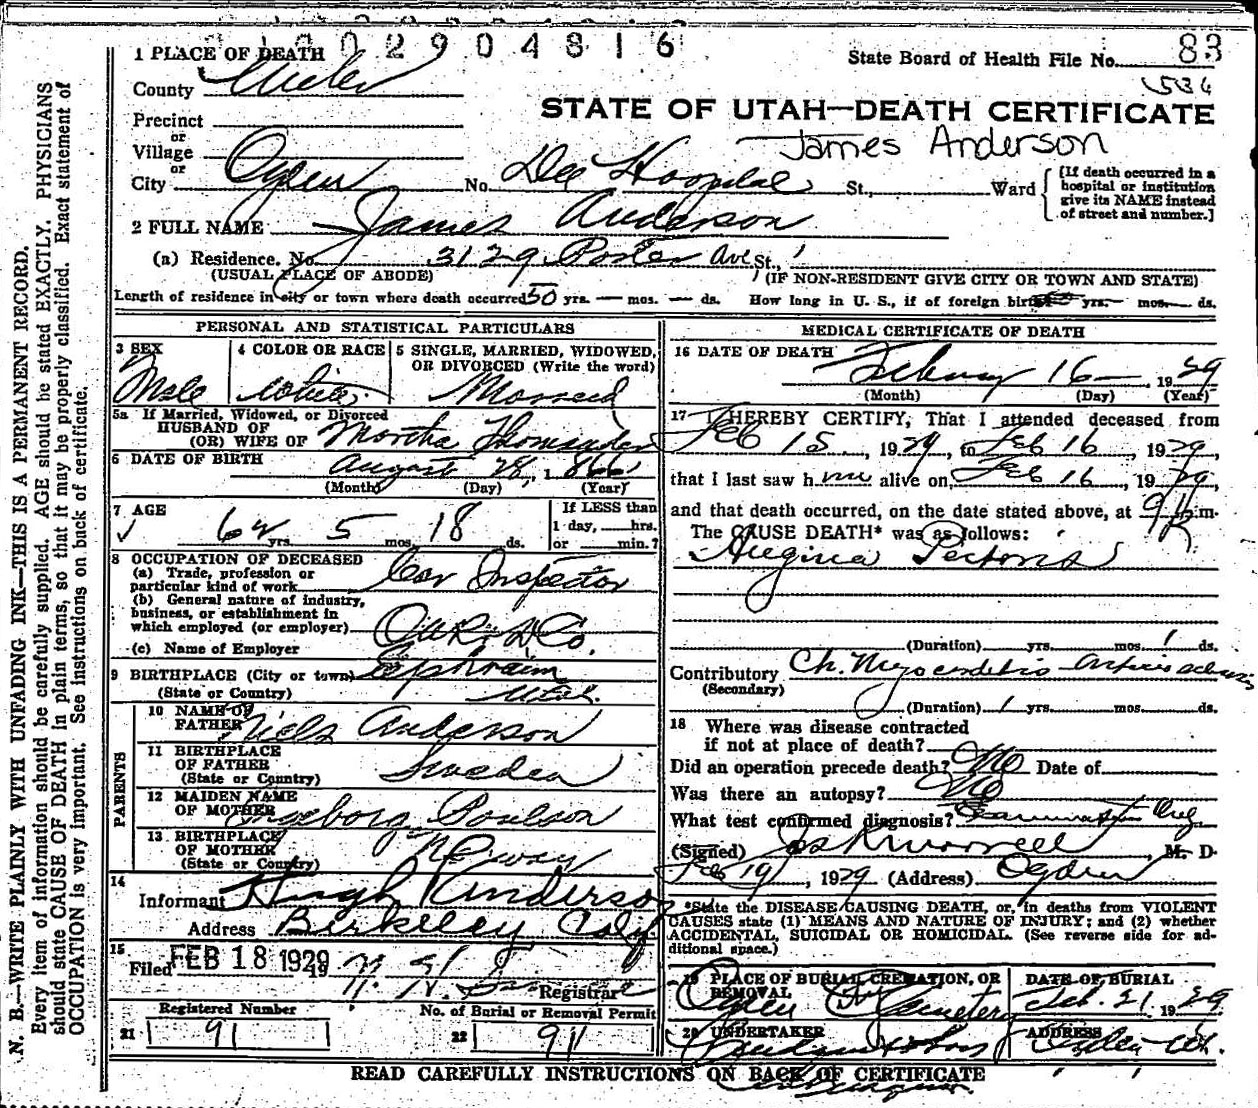 029048 16
State Board of Health File No. 83
534
1 PLACE OF DEATH
County Weber
STATE OF UTAH—DEATH CERTIFICATE
James Anderson
Precinct
or
Village
or
City Ogden No. Dee Hospital St., Ward
[If death occurred in a hospital or institution give its NAME instead of street and number.]
2 FULL NAME James Anderson
(a) Residence. No. 3129 Porter Ave St.,
(USUAL PLACE OF ABODE) (IF NON-RESIDENT GIVE CITY OR TOWN AND STATE)
Length of residence in city or town where death occurred 50 yrs. — mos. — ds. How long in U. S., if of foreign birth yrs. mos. ds.
PERSONAL AND STATISTICAL PARTICULARS
3 SEX
Male
4 COLOR OR RACE
White
5 SINGLE, MARRIED, WIDOWED, OR DIVORCED (Write the word)
Married
5a If Married, Widowed, or Divorced
HUSBAND OF
(OR) WIFE OF Martha
6 DATE OF BIRTH August 28, 1866
(Month) (Day) (Year)
7 AGE
62 yrs. 5 mos. 18 ds.
If LESS than
1 day, hrs.
or min.?
8 OCCUPATION OF DECEASED
(a) Trade, profession or
particular kind of work Car Inspector
(b) General nature of industry,
business, or establishment in
which employed (or employer) O U R & D Co.
(c) Name of Employer
9 BIRTHPLACE (City or town) Ephraim
(State or Country) Utah.
PARENTS
10 NAME OF
FATHER Niels Anderson
11 BIRTHPLACE
OF FATHER Sweden
(State or Country)
12 MAIDEN NAME
OF MOTHER Ingeborg Poulson
13 BIRTHPLACE
OF MOTHER Norway
(State or Country)
14
Informant Hugh Anderson
Address Berkeley Calif
15
Filed FEB 18 1929 19
Registrar
Registered Number
21 91
No. of Burial or Removal Permit
22 91
MEDICAL CERTIFICATE OF DEATH
16 DATE OF DEATH
February 16 — , 1929
(Month) (Day) (Year)
17 I HEREBY CERTIFY, That I attended deceased from
Feb 15, 1929, to Feb 16, 1929,
that I last saw him alive on, Feb 16, 1929,
and that death occurred, on the date stated above, at 9 m.
The CAUSE DEATH* was as follows:
Angina Pectoris
(Duration) yrs. mos. 1 ds.
Contributory Ch. Myocarditis —
(Secondary)
(Duration) 1 yrs. mos. ds.
18 Where was disease contracted
if not at place of death?
Did an operation precede death? No Date of
Was there an autopsy? No
What test confirmed diagnosis? Examination
(Signed) M. D.
Feb 19, 1929 (Address) Ogden
*State the DISEASE CAUSING DEATH, or, in deaths from VIOLENT
CAUSES state (1) MEANS AND NATURE OF INJURY; and (2) whether
ACCIDENTAL, SUICIDAL OR HOMICIDAL. (See reverse side for additional space.)
19 PLACE OF BURIAL, CREMATION, OR
REMOVAL
Ogden City Cemetery
DATE OF BURIAL
Feb. 21 1929
20 UNDERTAKER
ADDRESS
Ogden Ut.
READ CAREFULLY INSTRUCTIONS ON BACK OF CERTIFICATE
N. B.—WRITE PLAINLY WITH UNFADING INK—THIS IS A PERMANENT RECORD.
Every item of information should be carefully supplied. AGE should be stated EXACTLY. PHYSICIANS
should state CAUSE OF DEATH in plain terms, so that it may be properly classified. Exact statement of
OCCUPATION is very important. See instructions on back of certificate.